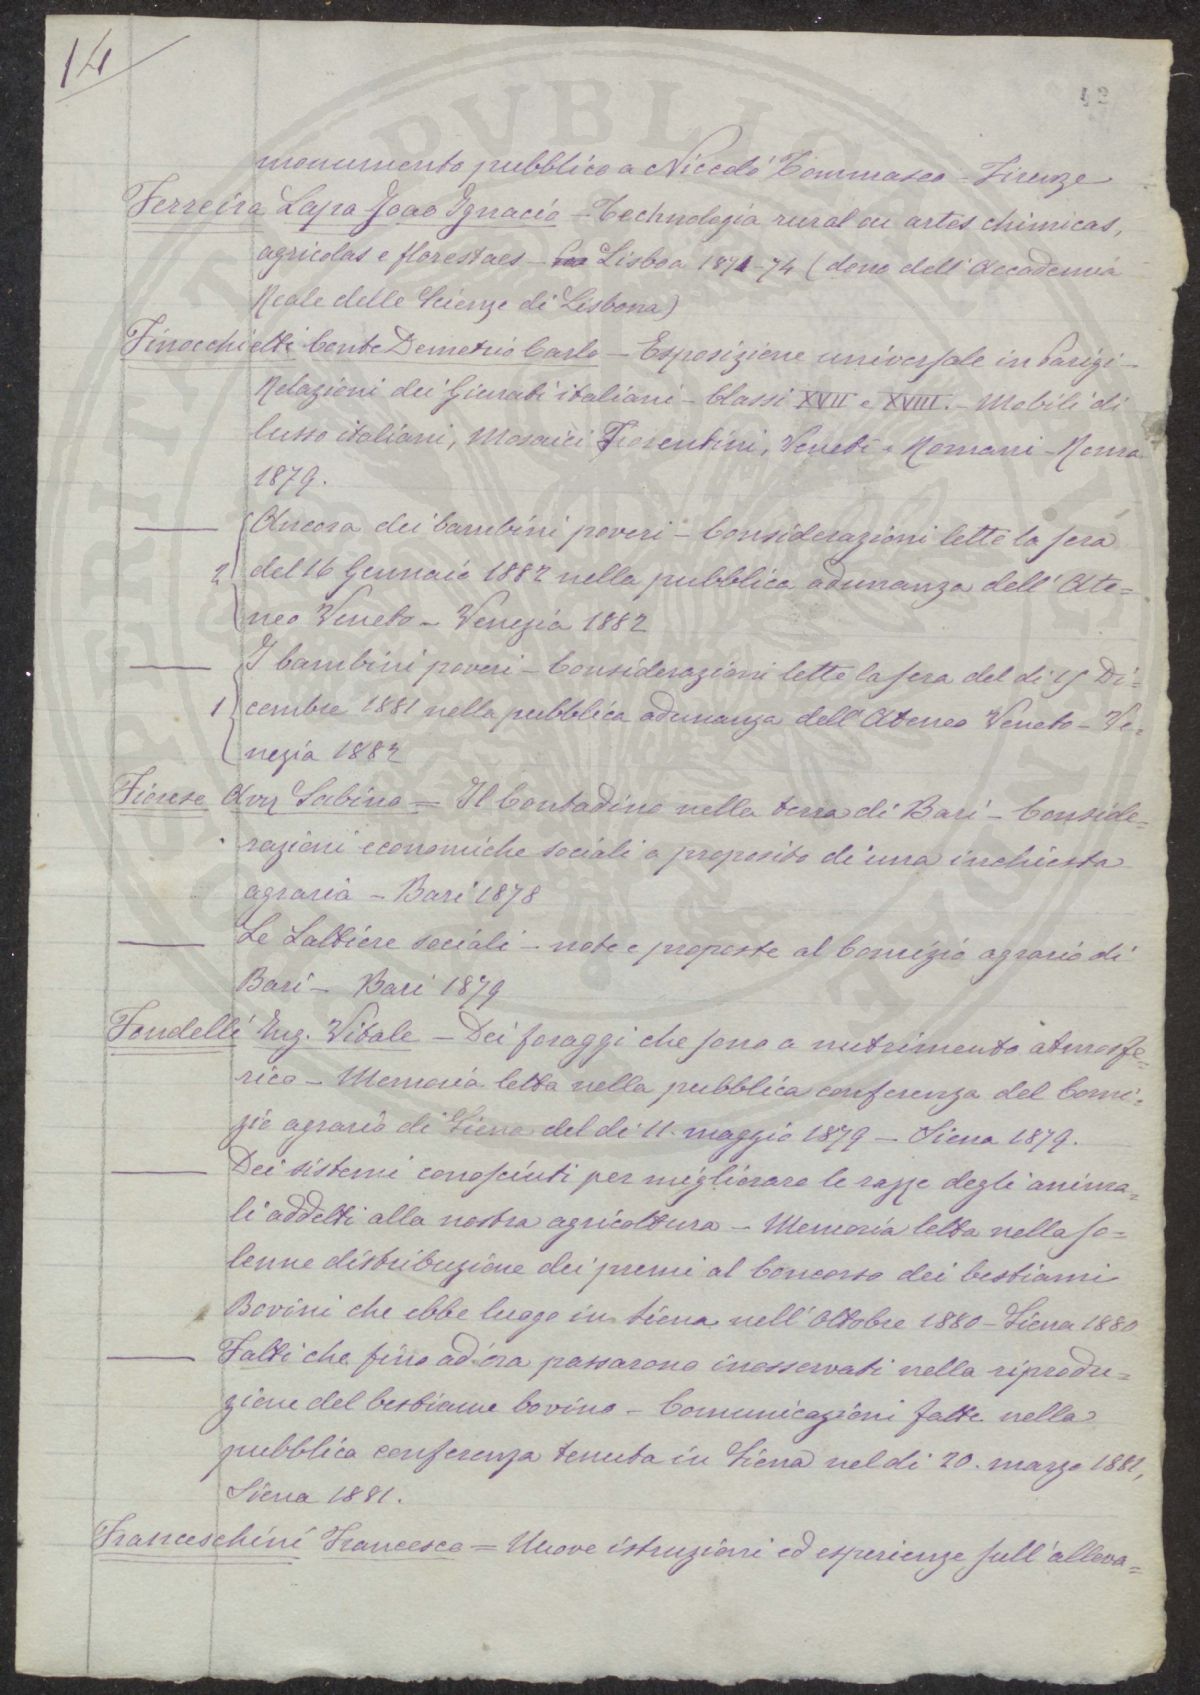 14
42
monumento pubblico a Niccolò Tommaseo - Firenze
Ferreira Lapa Joao Ignacio - Technologia rural ou artes chimicas,
agricolas e florestaes - Lisboa 1871-74 (dono dell'Accademia
Reale delle Scienze di Lisbona)
Finocchietti Conte Demetrio Carlo - Esposizione universale in Parigi -
Relazioni dei Giurati italiani - Classi XVII e XVIII. - Mobili di
lusso italiani, Mosaici Fiorentini, Veneti e Romani - Roma
1879.
— Ancora dei bambini poveri - Considerazioni lette la sera
2 del 16 Gennaio 1882 nella pubblica adunanza dell'Ate=
neo Veneto - Venezia 1882
— I bambini poveri - Considerazioni lette la sera del dì 15 Di=
1 cembre 1881 nella pubblica adunanza dell'Ateneo Veneto - Ve=
nezia 1882
Fiorese Avv Sabino = Il Contadino nella terra di Bari - Conside=
razioni economiche sociali a proposito di una inchiesta
agraria - Bari 1878
— Le Lattiere sociali - note e proposte al Comizio agrario di
Bari - Bari 1879
Fondelli Ing. Vitale - Dei foraggi che sono a nutrimento atmosfe=
rico - Memoria letta nella pubblica conferenza del Comi=
zio agrario di Siena del dì 11. maggio 1879 - Siena 1879.
— Dei sistemi conosciuti per migliorare le razze degli anima=
li addetti alla nostra agricoltura - Memoria letta nella so=
lenne distribuzione dei premi al Concorso dei bestiami
Bovini che ebbe luogo in Siena nell'Ottobre 1880 - Siena 1880
— Fatti che fino ad ora passarono inosservati nella riprodu=
zione del bestiame bovino - Comunicazioni fatte nella
pubblica conferenza tenuta in Siena nel dì 20. marzo 1881,
Siena 1881.
Franceschini Francesco = Nuove istruzioni ed esperienze sull'alleva=